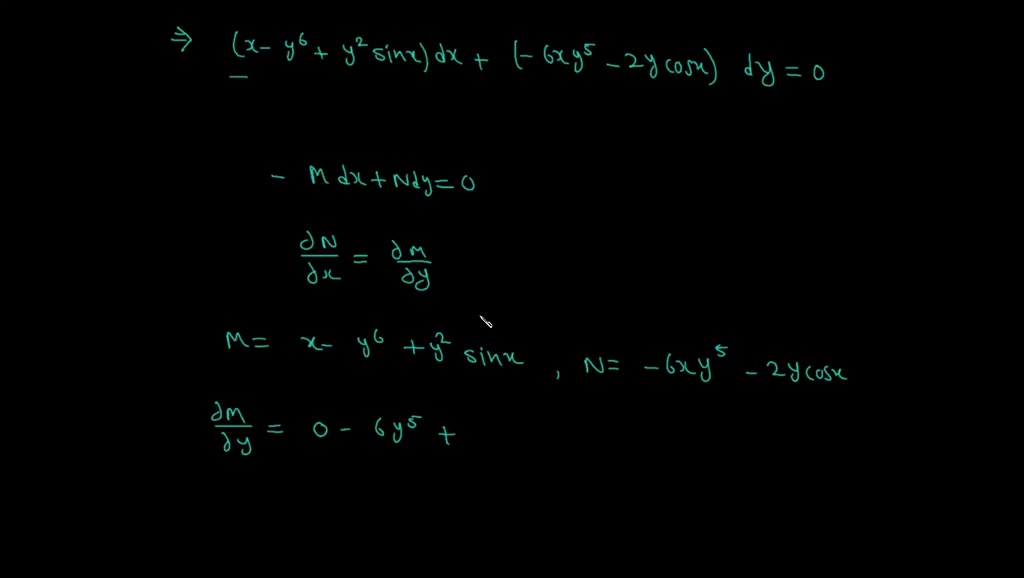 ⇒ (x - y⁶ + y² sinx) dx + (-6xy⁵ - 2y cosx) dy = 0
- M dx + N dy = 0
∂N/∂x = ∂M/∂y
M = x - y⁶ + y² sinx , N = -6xy⁵ - 2y cosx
∂M/∂y = 0 - 6y⁵ +